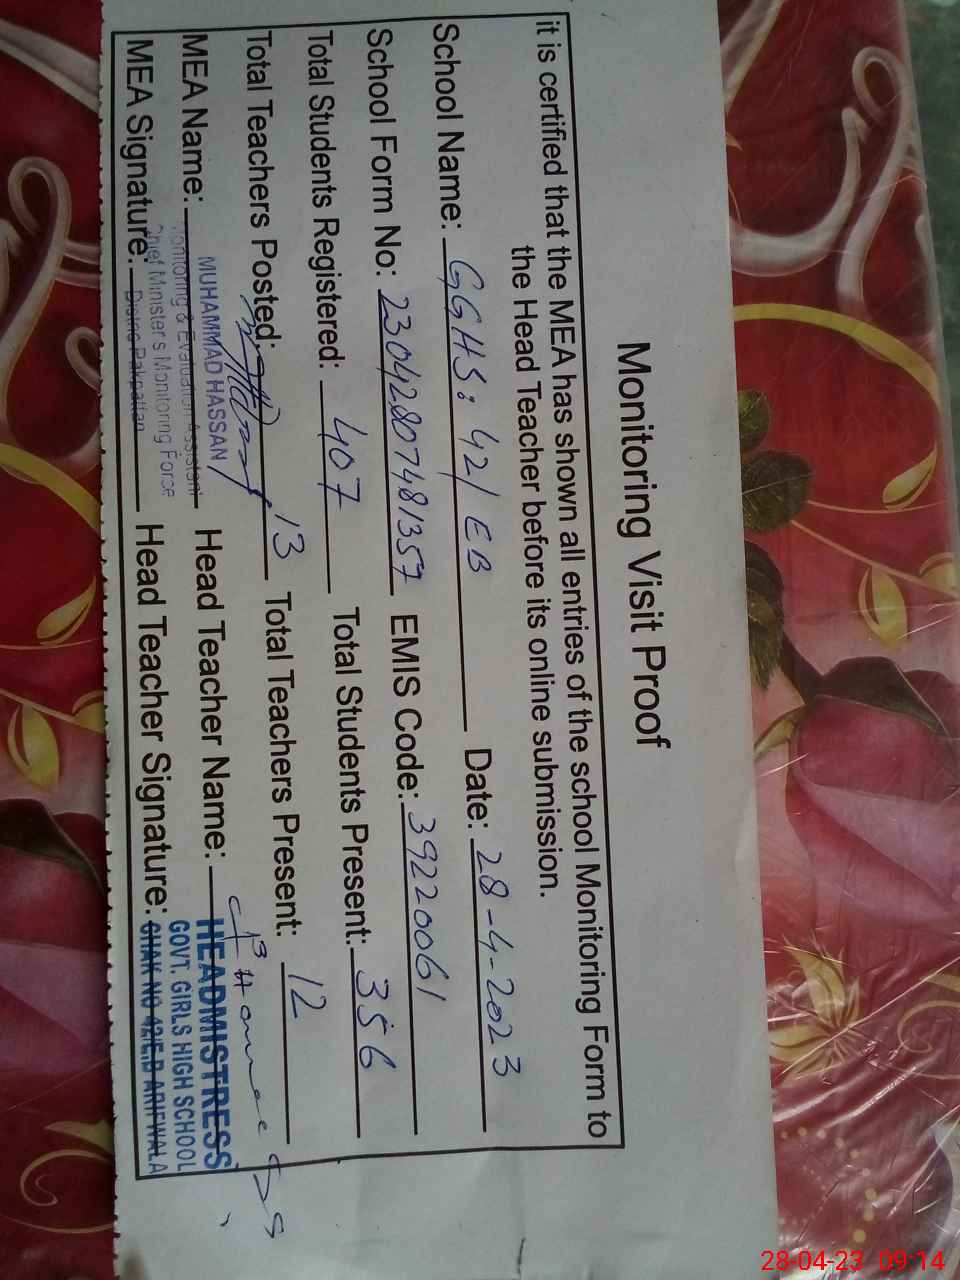 Monitoring Visit Proof
it is certified that the MEA has shown all entries of the school Monitoring Form to
the Head Teacher before its online submission.
School Name: GGHS: 42/EB Date: 28-4-2023
School Form No: 23042807481357 EMIS Code: 39220061
Total Students Registered: 407 Total Students Present: 356
Total Teachers Posted: 13 Total Teachers Present: 12
MEA Name: MUHAMMAD HASSAN Head Teacher Name: HEADMISTRESS
Monitoring & Evaluation Assistant GOVT. GIRLS HIGH SCHOOL
Chief Minister's Monitoring Force
MEA Signature: District Pakpattan Head Teacher Signature: CHAK NO 42/E.B ARIFWALA
28-04-23 09:14